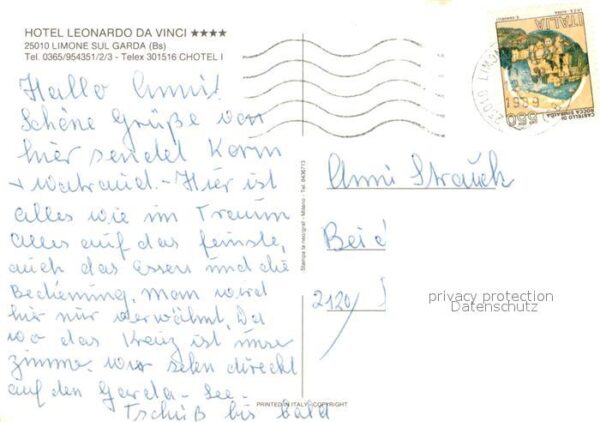 HOTEL LEONARDO DA VINCI ★★★★
25010 LIMONE SUL GARDA (Bs)
Tel. 0365/954351/2/3 - Telex 301516 CHOTEL I
Hallo Anni!
Schöne Grüße von
hier sendet Karin
+ Waltraud. - Hier ist
alles wie im Traum
alles auf das feinste,
auch das Essen und die
Bedienung. Man wird
hir nur verwöhnt. Da
wo das Kreuz ist unse
zimme. wir sehn direckt
auf den Garda-See.
Tschüß bis bald
Stampa
Anni Strauch
2120/
ITALIA
CASTELLO DI
ROCCA DI URBISAGLIA
550
25010 LIMONE
1989
PRINTED IN ITALY - COPYRIGHT
privacy protection
Datenschutz